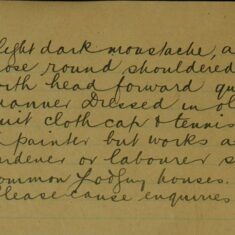 light dark moustache, a
ose round shouldered
orth head forward qu
manner Dressed in ol
uit cloth cap & tennis
painter but works a
ardener or labourer s
ommon Lodging houses.
Please cause enquiries